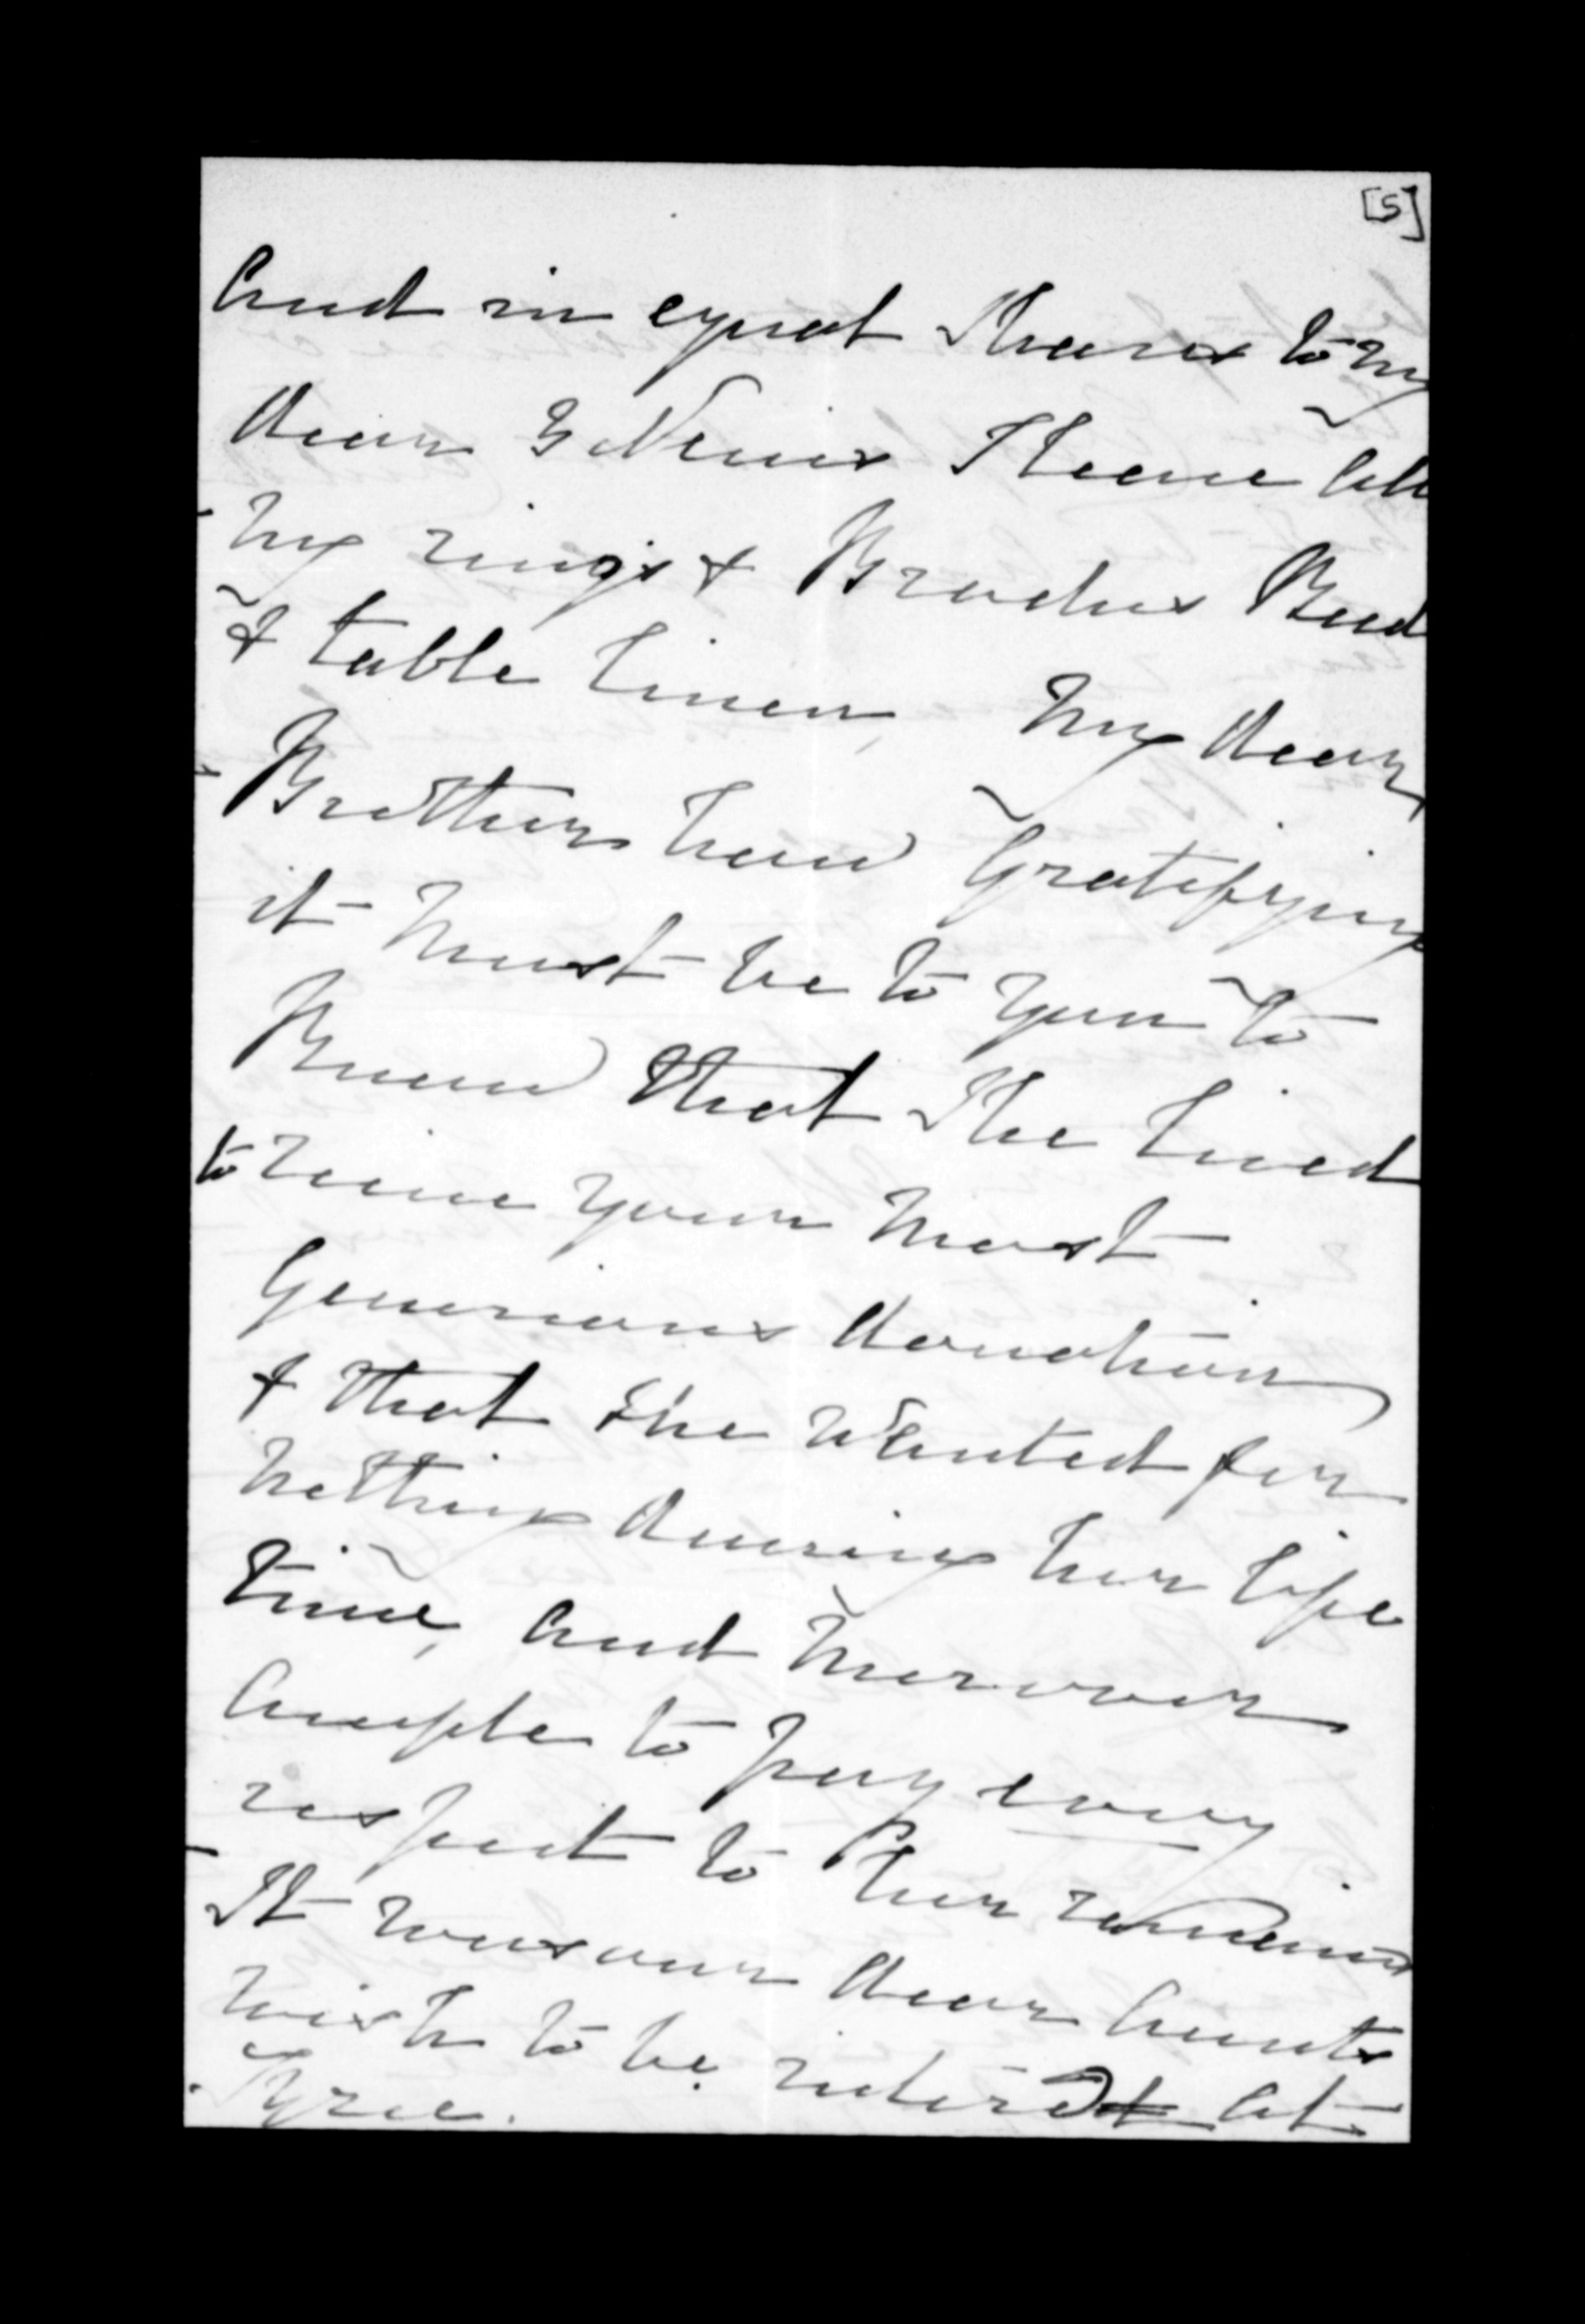 [5]
And in equal Shares to my
dear 3 Neices I leave all
my rings & Broches Bed
& table linen, My dear
Brother how Gratifying
it must be to you to
Know that She lived
to your most
Generious donation
& that She Wanted for
nothing during her life
time, And moreover
Ample to pay every
respect to her remains
It was our dear Aunts
wish to be at
Tyree.